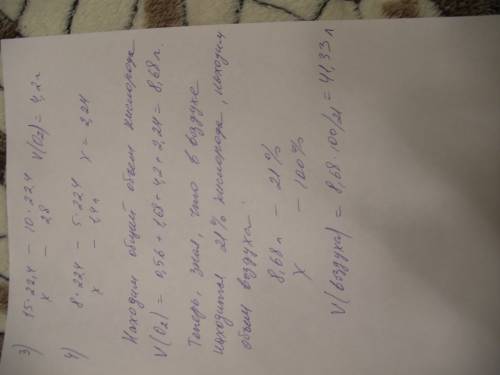 3) 15·22,4 — 10·22,4 V(O2) = 4,2 л
x — 28
4) 8·22,4 — 5·22,4 x = 2,24
x — 1,4 л
Находим общий объем кислорода
V(O2) = 0,56 + 1,68 + 4,2 + 2,24 = 8,68 л.
Теперь, зная, что в воздухе
находится 21% кислорода, находим
объем воздуха:
8,68 л — 21%
x — 100%
V(воздуха) = 8,68·100/21 = 41,33 л